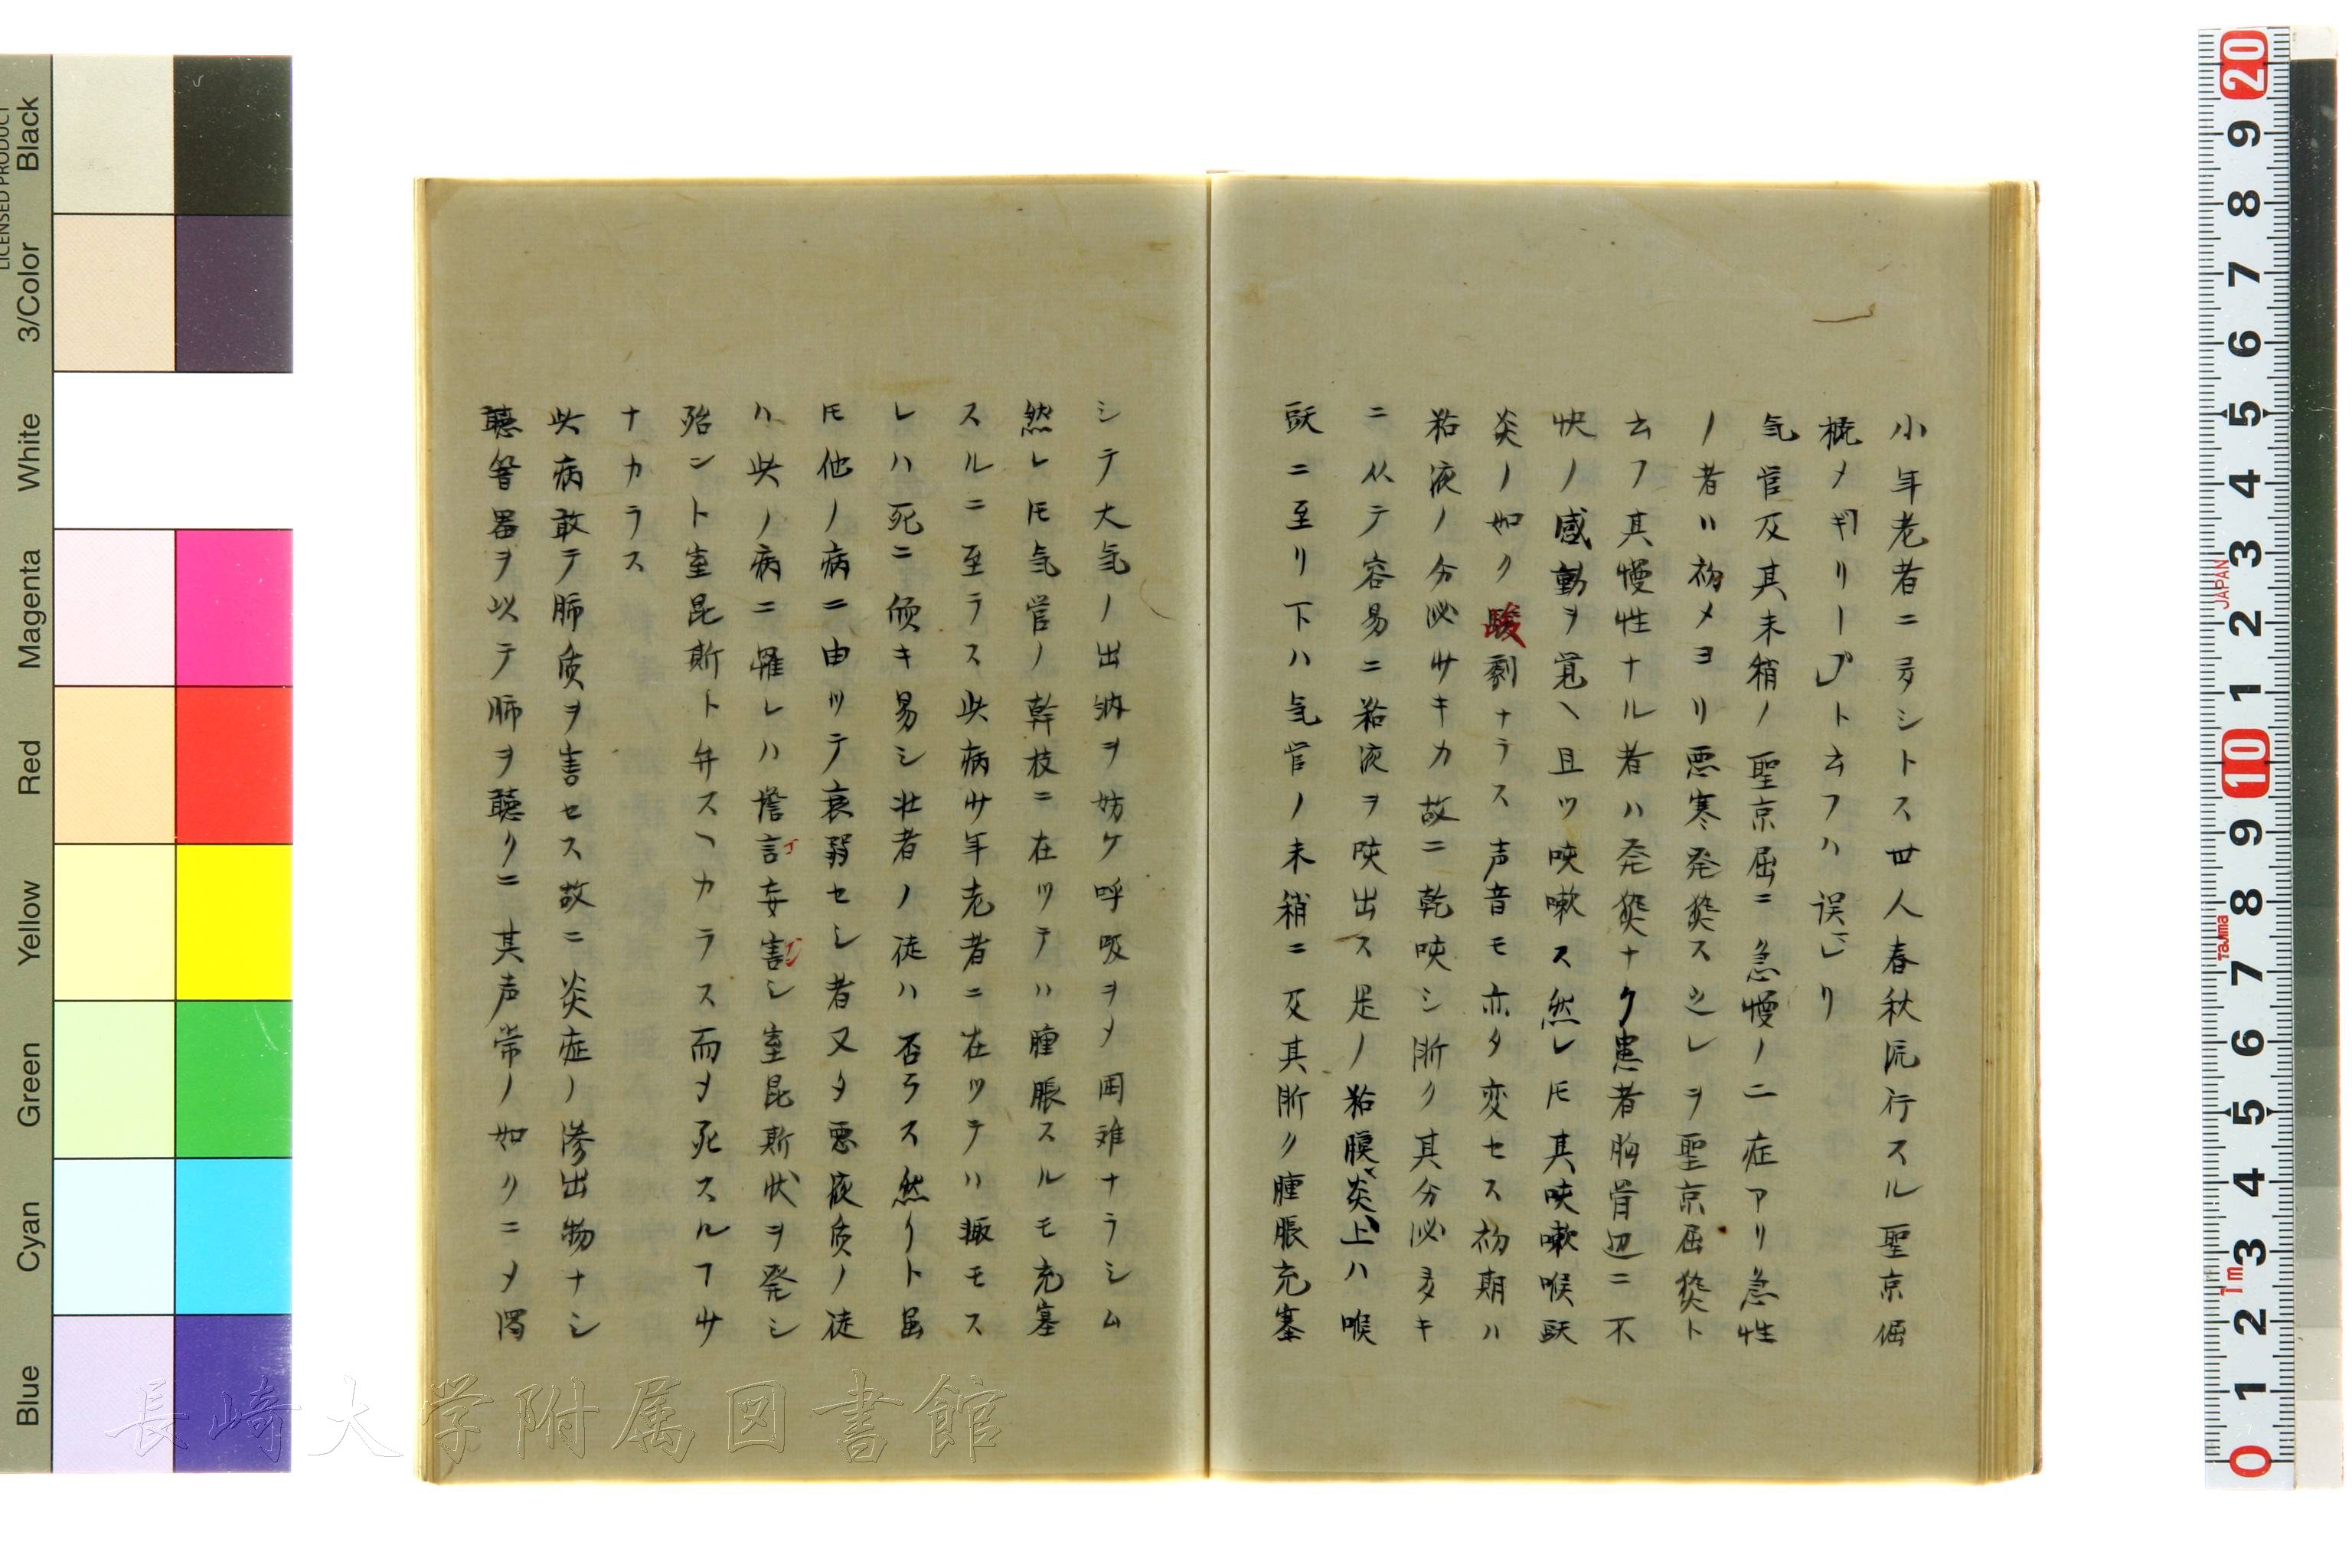 小年老者ニ多シトス世人春秋流行スル聖京倔
槪メギリープト云フハ誤レリ
気官及其末稍ノ聖京屈ニ急慢ノ二症アリ急性
ノ者ハ初メヨリ悪寒発㷔スレヲ聖京屈㷔ト
云フ其慢性ナル者ハ発㷔ナク患者胸骨辺ニ不
快ノ感動ヲ覚ヘ且ツ咳嗽ス然レ𪜈其咳嗽喉頭
炎ノ如ク駿劇ナラス声音モ亦タ変セス初期ハ
粘液ノ分泌サキカ故ニ乾咳シ漸ク其分泌多キ
ニ从テ容易ニ粘液ヲ咳出ス是ノ粘膜炎上ハ喉
頭ニ至リ下ハ気官ノ末稍ニ及其漸ク腫脹充塞
シテ大気ノ出納ヲ妨ケ呼吸ヲメ困难ナラシム
然レ𪜈気官ノ幹枝ニ在ツテハ腫脹スルモ充塞
スルニ至ラス此病サ年老者ニ在ツテハ輙モス
レハ死ニ傾キ易シ壮者ノ徒ハ否ラス然リト虽
𪜈他ノ病ニ由ツテ衰弱セシ者又タ悪液质ノ徒
ハ此ノ病ニ罹レハ譫言妄害シ窒昆斯状ヲ発シ
殆ント窒昆斯ト弁スヘカラス而ヲ死スルヿサ
ナカラス
此病敢テ肺质ヲ害セス故ニ炎症ノ滲出物ナシ
聴管器ヲ以テ肺ヲ聴クニ其声常ノ如クニメ濁
長崎大学附属図書館
Black
3/Color
White
Magenta
Red
Yellow
Green
Cyan
Blue
LICENSED PRODUCT
20
9
8
7
6
5
4
3
2
1
10
9
8
7
6
5
4
3
2
1
0
JAPAN
Tajima
1m